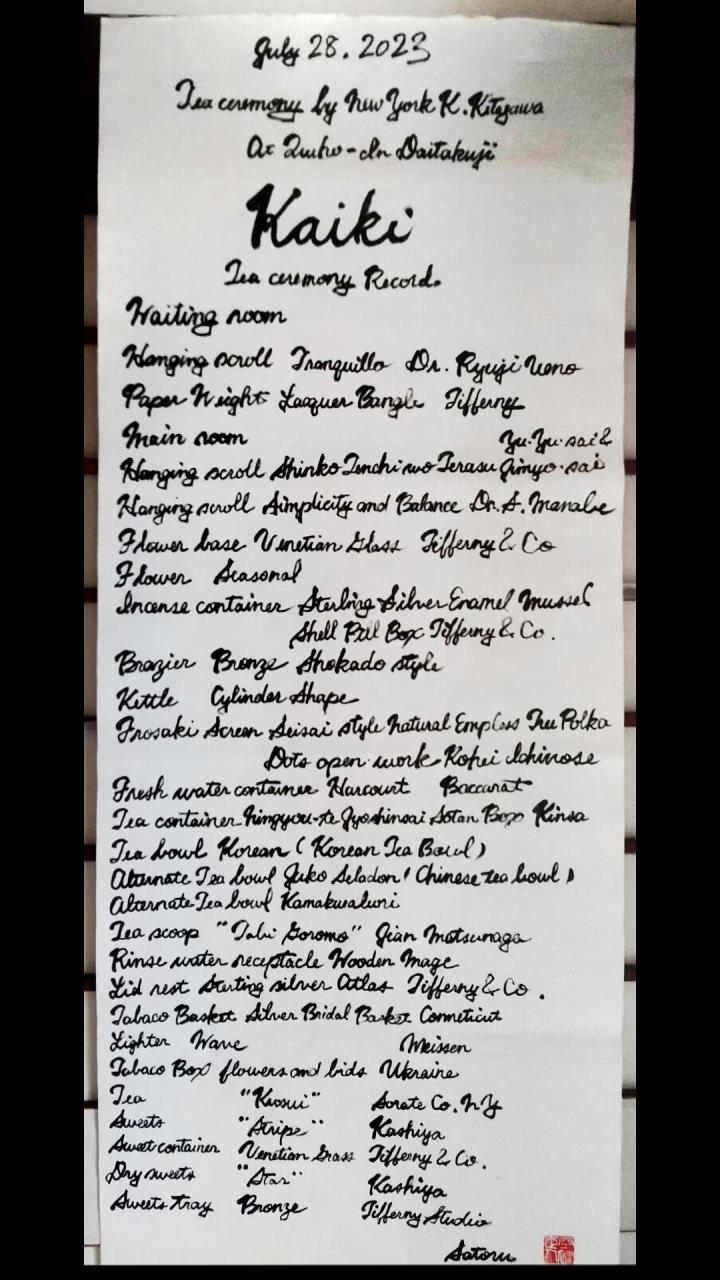 July 28. 2023
Tea ceremony by New York K. Kitagawa
At Zuiho-In Daitakuji
Kaiki
Tea ceremony Record.
Waiting room
Hanging scroll Tranquillo Dr. Ryuji Ueno
Paper Weight Lacquer Bangle Tifferny
Main room Yu.Yu.sai &
Hanging scroll Shinko Tenchi wo Terasu Jimyo.sai
Hanging scroll Simplicity and Balance Dr. S. Manabe
Flower base Venetian Glass Tifferny & Co
Flower Seasonal
Incense container Sterling Silver Enamel Mussel
Shell Pill Box Tifferny & Co.
Brazier Bronze Shokado style
Kettle Cylinder Shape
Frosaki Screen Seisai style Natural Empless Tree Polka
Dots open work Kohei Ichinose
Fresh water container Harcourt Baccarat
Tea container Ningyou-te Jyoshinsai Sotan Box Kinsa
Tea bowl Korean (Korean Tea Bowl)
Alternate Tea bowl Juko Seladon (Chinese tea bowl)
Alternate Tea bowl Kamakuraburi
Tea scoop "Tabi Goromo" Jian Matsunaga
Rinse water receptacle Wooden Mage
Lid rest Starting silver Atlas Tifferny & Co.
Tabaco Basket Silver Bridal Basket Conneticut
Lighter Wave Meissen
Tabaco Box flowers and bids Ukraine
Tea "Kiosui" Sorate Co. N.Y
Sweets "Stripe" Kashiya
Sweet container Venetian Grass Tifferny & Co.
Dry sweets "Star" Kashiya
Sweets tray Bronze Tifferny Studio
Satoru